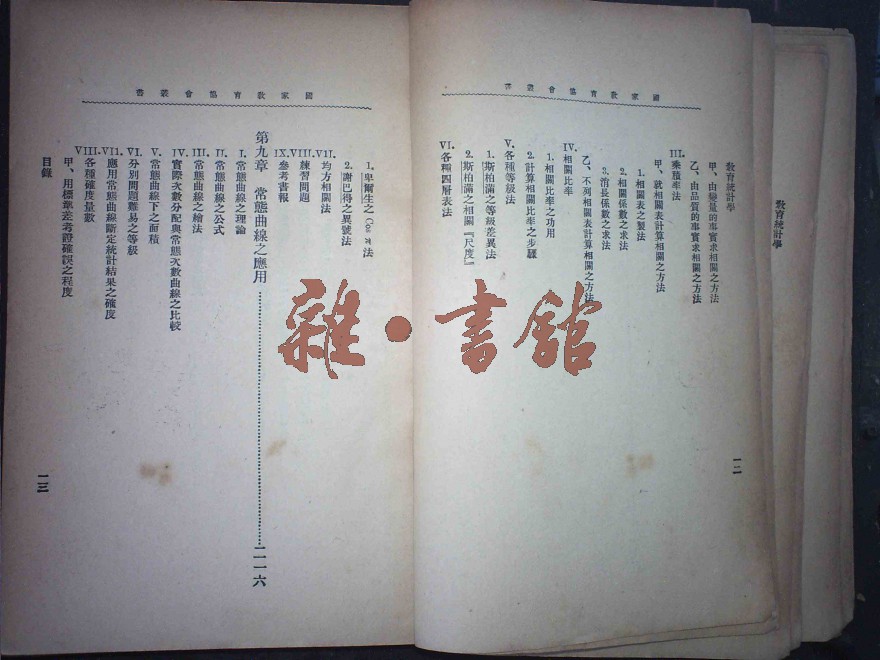 國家教育協會叢書
教育統計學
甲、由變量的事實求相關之方法
乙、由品質的事實求相關之方法
III. 乘積率法
甲、就相關表計算相關之方法
1. 相關表之製法
2. 相關係數之求法
3. 消長係數之求法
乙、不列相關表計算相關之方法
IV. 相關比率
1. 相關比率之功用
2. 計算相關比率之步驟
V. 各種等級法
1. 斯柏滿之等級差異法
2. 斯柏滿之相關『尺度』
VI. 各種四層表法
一二
國家教育協會叢書
1. 皐爾生之 Cos π 法
2. 謝巴得之異號法
VII. 均方相關法
VIII. 練習問題
IX. 參考書報
第九章 常態曲線之應用……二一六
I. 常態曲線之理論
II. 常態曲線之公式
III. 常態曲線之繪法
IV. 實際次數分配與常態次數曲線之比較
V. 常態曲線下之面積
VI. 分別問題難易之等級
VII. 應用常態曲線斷定統計結果之確度
VIII. 各種確度量數
甲、用標準差考證確誤之程度
目錄
一三
教育統計學
雜·書館